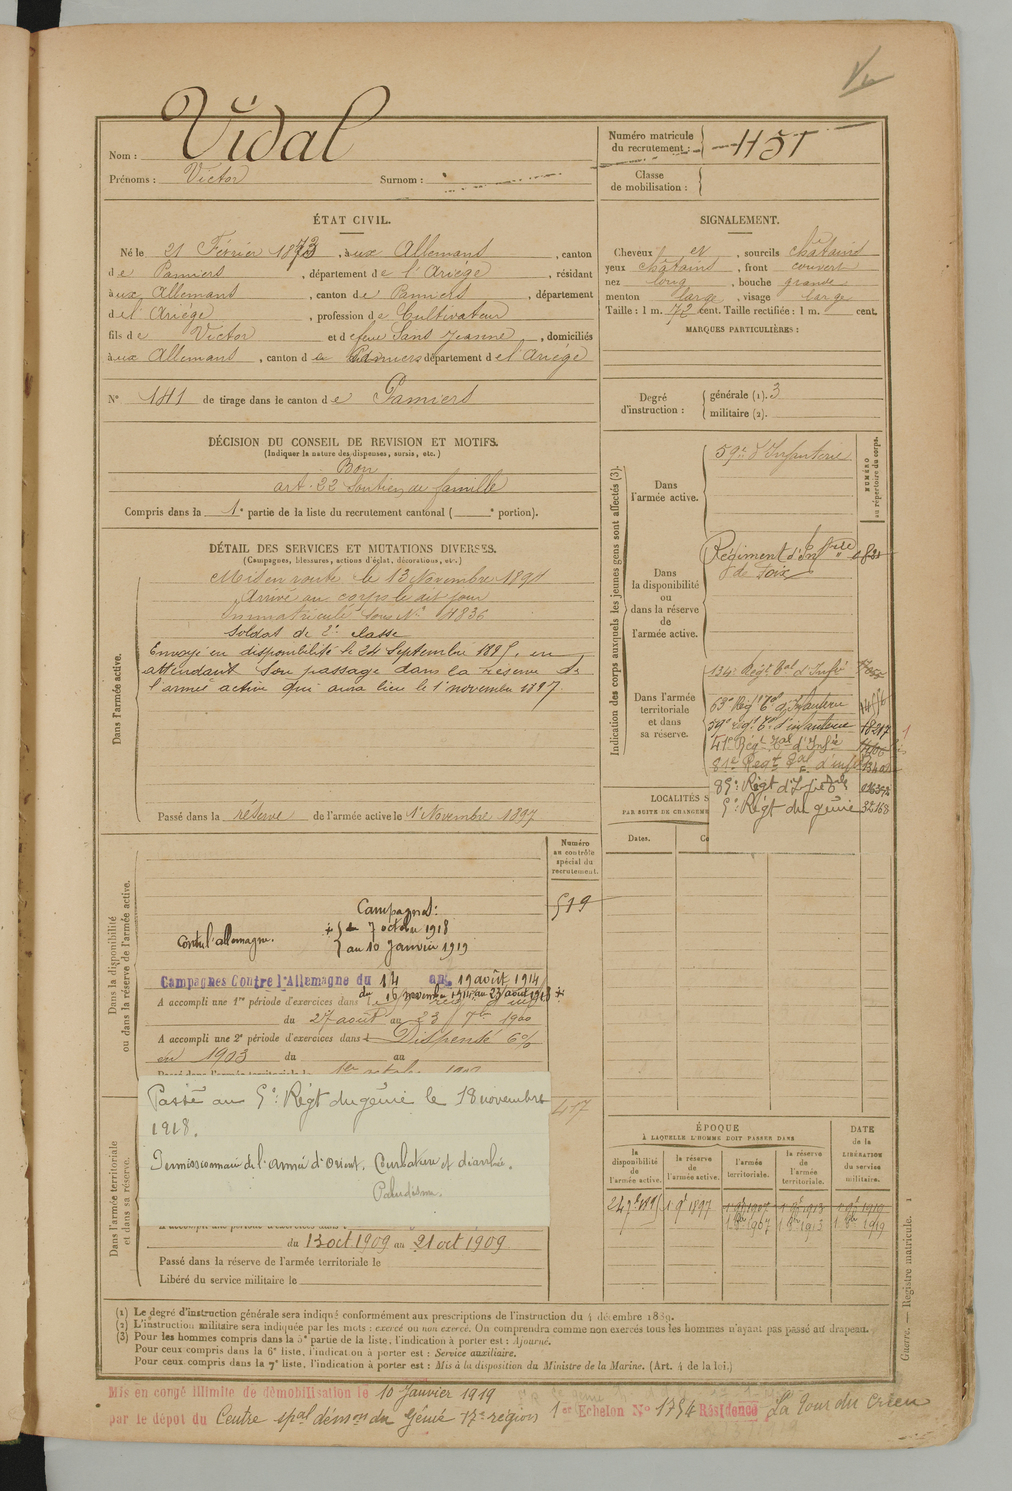 Vidal
Nom :
Prénoms : Victor Surnom :
Numéro matricule
du recrutement : 1151
Classe
de mobilisation :
ÉTAT CIVIL.
Né le 21 Février 1873, à ux Allemans, canton
de Pamiers, département de l'Ariège, résidant
à ux Allemans, canton de Pamiers, département
de l'Ariège, profession de Cultivateur
fils de Victor et de feue Sans Jeanne, domiciliés
à ux Allemans, canton de Pamiers département de l'Ariège
N° 181 de tirage dans le canton de Pamiers
SIGNALEMENT.
Cheveux et, sourcils châtains
yeux châtains, front couvert
nez long, bouche grande
menton large, visage large
Taille : 1 m. 72 cent. Taille rectifiée : 1 m. cent.
MARQUES PARTICULIÈRES :
Degré
d'instruction :
générale (1). 3
militaire (2).
DÉCISION DU CONSEIL DE REVISION ET MOTIFS.
(Indiquer la nature des dispenses, sursis, etc.)
Bon
art. 22 Soutien de famille
Compris dans la 1e partie de la liste du recrutement cantonal ( e portion).
DÉTAIL DES SERVICES ET MUTATIONS DIVERSES.
(Campagnes, blessures, actions d'éclat, décorations, etc.)
Dans l'armée active.
Mis en route le 13 Novembre 1894
Arrivé au corps le dit jour
Immatriculé sous N° 4836
Soldat de 2e classe
Envoyé en disponibilité le 24 Septembre 1895, en
attendant son passage dans la réserve de
l'armée active qui aura lieu le 1er novembre 1897.
Passé dans la réserve de l'armée active le 1er Novembre 1897
Indication des corps auxquels les jeunes gens sont affectés (3).
NUMÉRO
au répertoire du corps.
Dans
l'armée active.
59e d'Infanterie
Dans
la disponibilité
ou
dans la réserve
de
l'armée active.
Régiment d'Infrie
de Foix
Dans l'armée
territoriale
et dans
sa réserve.
134e Régt Tal d'Infie
63e Régt Tal d'Infanterie
59e régt Tal d'infanterie 18517
41e Régt Tal d'Infie
81e Régt Tal d'infie
85e Régt d'Infie Tale
5e Régt du génie 32168
LOCALITÉS S
PAR SUITE DE CHANGEME
Dates.
Co
Dans la disponibilité
ou dans la réserve de l'armée active.
Numéro
au contrôle
spécial du
recrutement.
519
Campagnes :
Contre l'allemagne. du 7 octobre 1918
au 10 Janvier 1919
Campagnes Contre l'Allemagne du 14 au 19 août 1914
du 16 novembre 1914 au 23 août 1918
A accompli une 1re période d'exercices dans
du 27 août au 23 7bre 1900
A accompli une 2e période d'exercices dans Dispensé 6%
en 1903 du au
Dans l'armée territoriale
et dans sa réserve.
417
Passé au 5e Régt du génie le 18 novembre
1918.
Permissionnaire de l'armée d'orient. Courbature et diarrhée.
Paludisme.
du 13 oct 1909 au 21 oct 1909
Passé dans la réserve de l'armée territoriale le
Libéré du service militaire le
ÉPOQUE
À LAQUELLE L'HOMME DOIT PASSER DANS
DATE
de la
LIBÉRATION
du service
militaire.
la
disponibilité
de
l'armée active.
la réserve
de
l'armée active.
l'armée
territoriale.
la réserve
de
l'armée
territoriale.
24 7bre 1895 1er 9bre 1897 1er 9bre 1907 1er 9bre 1913 1er 9bre 1919
1er 8bre 1907 1er 8bre 1913 1er 8bre 1919
(1) Le degré d'instruction générale sera indiqué conformément aux prescriptions de l'instruction du 4 décembre 1889.
(2) L'instruction militaire sera indiquée par les mots : exercé ou non exercé. On comprendra comme non exercés tous les hommes n'ayant pas passé au drapeau.
(3) Pour les hommes compris dans la 5e partie de la liste, l'indication à porter est : Ajourné.
Pour ceux compris dans la 6e liste, l'indication à porter est : Service auxiliaire.
Pour ceux compris dans la 7e liste, l'indication à porter est : Mis à la disposition du Ministre de la Marine. (Art. 4 de la loi.)
Guerre. — Registre matricule. 1
Mis en congé illimité de démobilisation le 10 Janvier 1919
par le dépôt du Centre spal démon du Génie 17e région 1er Echelon N° 1754 Résidence La Tour du Crieu